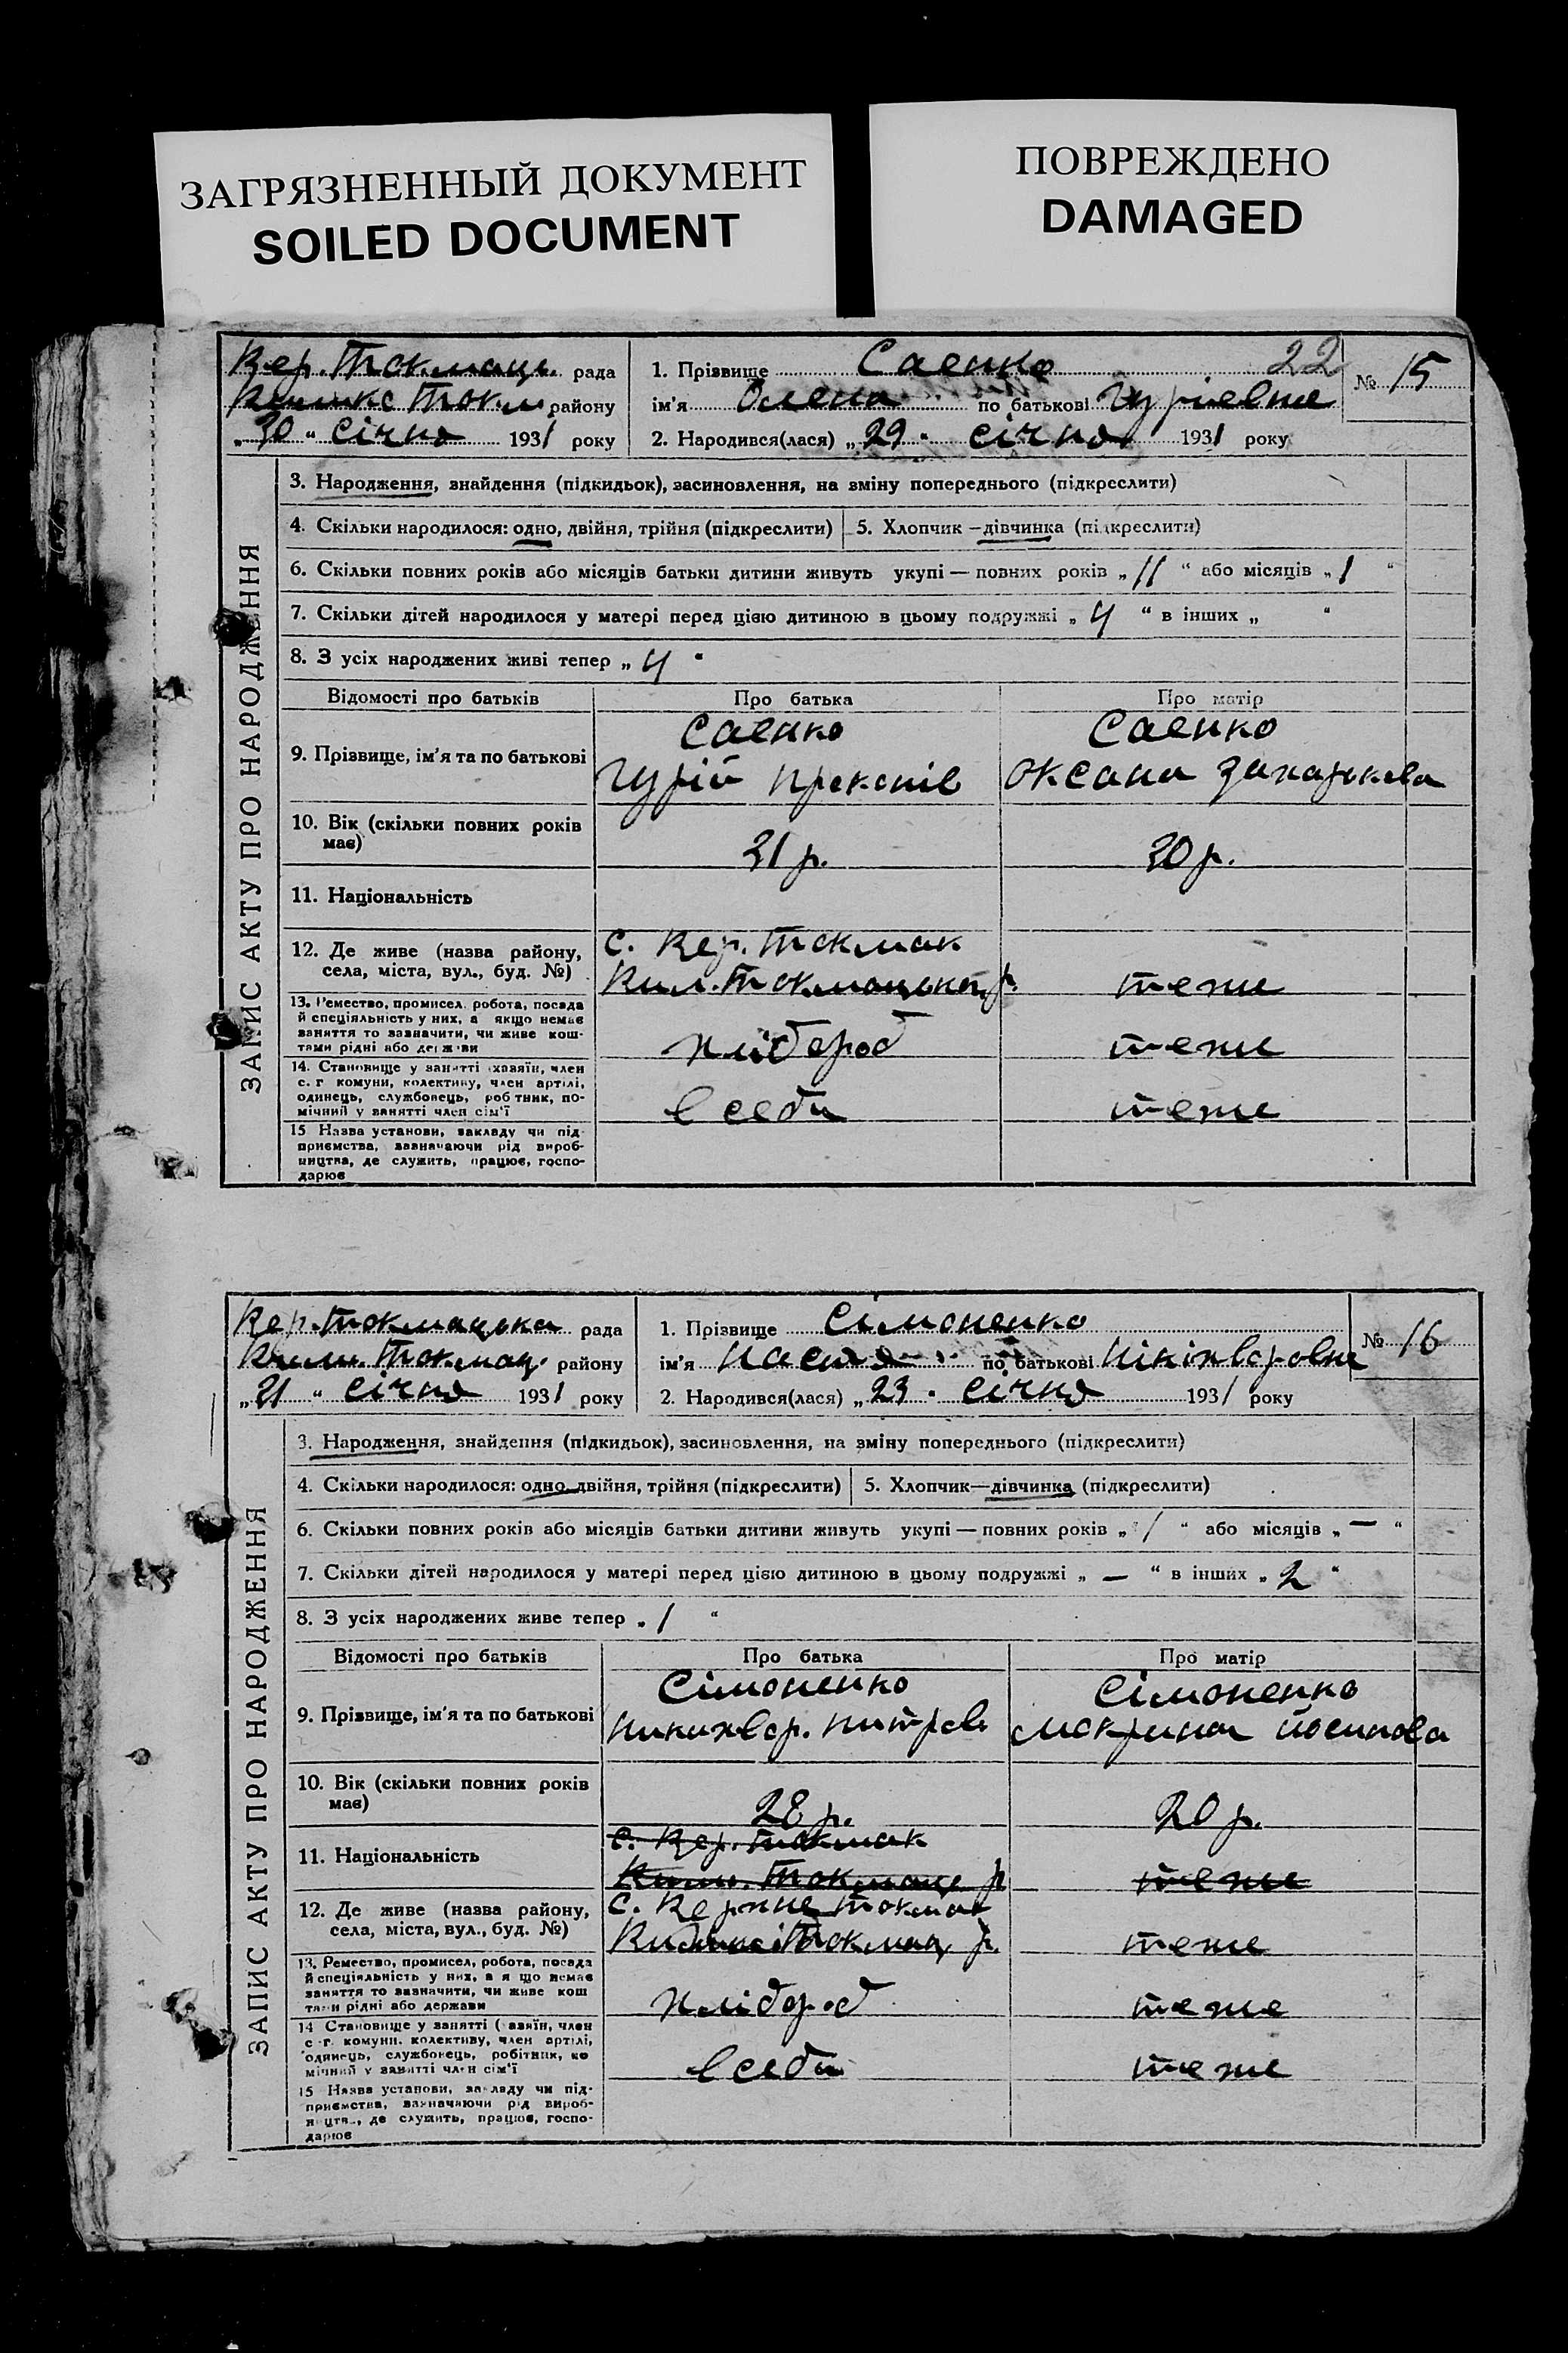 ЗАГРЯЗНЕННЫЙ ДОКУМЕНТ
SOILED DOCUMENT
ПОВРЕЖДЕНО
DAMAGED
ЗАПИС АКТУ ПРО НАРОДЖЕННЯ
Вер. Токмаць. рада
району
„30“ січня 1931 року
1. Прізвище Саенко 22
ім'я Олена по батькові Гуріевне
2. Народився(лася) „29“ січня 1931 року
№ 15
3. Народження, знайдення (підкидьок), засиновлення, на зміну попереднього (підкреслити)
4. Скільки народилося: одно, двійня, трійня (підкреслити) 5. Хлопчик—дівчинка (підкреслити)
6. Скільки повних років або місяців батьки дитини живуть укупі — повних років „11“ або місяців „1“
7. Скільки дітей народилося у матері перед цією дитиною в цьому подружжі „4“ в інших „ “
8. З усіх народжених живі тепер „4“
Відомості про батьків Про батька Про матір
Саенко Саенко
9. Прізвище, ім'я та по батькові Гурій Прокопів Оксана Захарькова
10. Вік (скільки повних років має) 31 р. 30 р.
11. Національність
12. Де живе (назва району, села, міста, вул., буд. №) с. Вер. Токмак
теже
13. Ремество, промисел, робота, посада
й спеціяльність у них, а якщо немає
заняття то зазначити, чи живе кош-
тами рідні або держави
хлібороб теже
14. Становище у занятті хазяїн, член
с. г комуни, колективу, член артілі,
одинець, службовець, робтник, по-
мічний у занятті член сім'ї
в себи теже
15 Назва установи, закладу чи під-
приємства, зазначаючи рід вироб-
ництва, де служить, працює, госпо-
дарює
ЗАПИС АКТУ ПРО НАРОДЖЕННЯ
Вер. Токмацька рада
району
„31“ січня 1931 року
1. Прізвище Сімоненко
ім'я Настя по батькові Нікіхворовне
2. Народився(лася) „23“ січня 1931 року
№ 16
3. Народження, знайдення (підкидьок), засиновлення, на зміну попереднього (підкреслити)
4. Скільки народилося: одно, двійня, трійня (підкреслити) 5. Хлопчик—дівчинка (підкреслити)
6. Скільки повних років або місяців батьки дитини живуть укупі — повних років „1“ або місяців „—“
7. Скільки дітей народилося у матері перед цією дитиною в цьому подружжі „—“ в інших „2“
8. З усіх народжених живе тепер „1“
Відомості про батьків Про батька Про матір
Сімоненко Сімоненко
9. Прізвище, ім'я та по батькові Никихвор. Митров Мокрина Йосипова
10. Вік (скільки повних років має) 28 р. 20 р.
с. Вер. Токмак
11. Національність теже
12. Де живе (назва району, села, міста, вул., буд. №) с. Верхне Токмак
теже
13. Ремество, промисел, робота, посада
й спеціяльність у них, а я що немає
заняття то зазначити, чи живе кош
тами рідні або держави
хлібороб теже
14 Становище у занятті (хазяїн, член
с г. комуни, колективу, член артілі,
одинець, службовець, робітник, по
мічний у занятті член сім'ї
в себи теже
15 Назва установи, закладу чи під-
приємства, зазначаючи рід вироб-
ництва, де служить, працює, госпо-
дарює